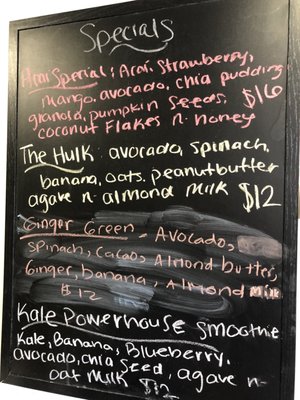 Specials
Acai Special: Acai, Strawberry,
mango, avocado, chia pudding
granola, pumpkin seeds, $16
coconut flakes n. honey
The Hulk: avocado, spinach,
banana, oats, peanutbutter
agave n. almond milk $12
Ginger Green - Avocado,
Spinach, Cacao, Almond butter,
Ginger, banana, Almond milk
$12
Kale Powerhouse Smoothie
Kale, Banana, Blueberry,
avocado, chia seed, agave n-
oat milk $12